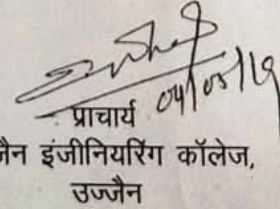 04/05/19
प्राचार्य
जैन इंजीनियरिंग कॉलेज,
उज्जैन